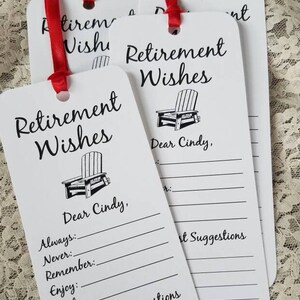 Retirement
Wishes
Dear Cindy,
Always:
Never:
Remember:
Enjoy:
Retirement
Wishes
Dear Cindy,
Suggestions